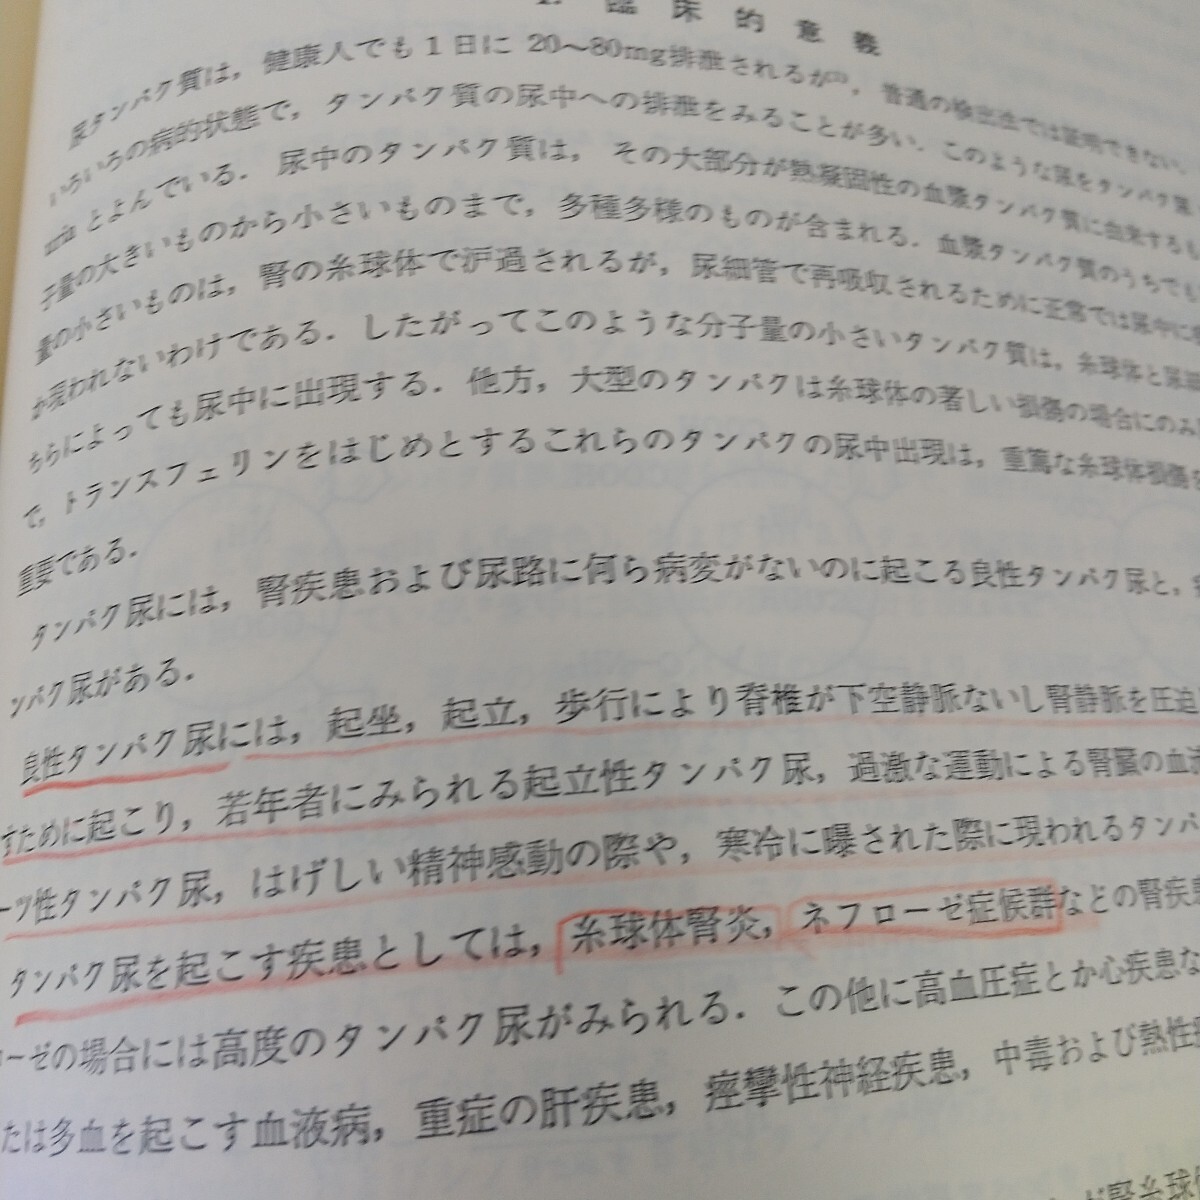 1. 臨床的意義
尿タンパク質は，健康人でも1日に 20〜80mg排泄されるが，普通の検出法では証明できない．
いろいろの病的状態で，タンパク質の尿中への排泄をみることが多い．このような尿をタンパク尿
uria とよんでいる．尿中のタンパク質は，その大部分が熱凝固性の血漿タンパク質に由来するも
子量の大きいものから小さいものまで，多種多様のものが含まれる．血漿タンパク質のうちでも
量の小さいものは，腎の糸球体で沪過されるが，尿細管で再吸収されるために正常では尿中に
か現われないわけである．したがってこのような分子量の小さいタンパク質は，糸球体と尿細
ちらによっても尿中に出現する．他方，大型のタンパクは糸球体の著しい損傷の場合にのみ
で，トランスフェリンをはじめとするこれらのタンパクの尿中出現は，重篤な糸球体損傷を
重要である．
タンパク尿には，腎疾患および尿路に何ら病変がないのに起こる良性タンパク尿と，
ンパク尿がある．
良性タンパク尿には，起坐，起立，歩行により脊椎が下空静脈ないし腎静脈を圧迫
すために起こり，若年者にみられる起立性タンパク尿，過激な運動による腎臓の血
ーツ性タンパク尿，はげしい精神感動の際や，寒冷に曝された際に現われるタンパ
タンパク尿を起こす疾患としては，糸球体腎炎，ネフローゼ症候群などの腎疾患
ローゼの場合には高度のタンパク尿がみられる．この他に高血圧症とか心疾患な
たは多血を起こす血液病，重症の肝疾患，痙攣性神経疾患，中毒および熱性
腎糸球体